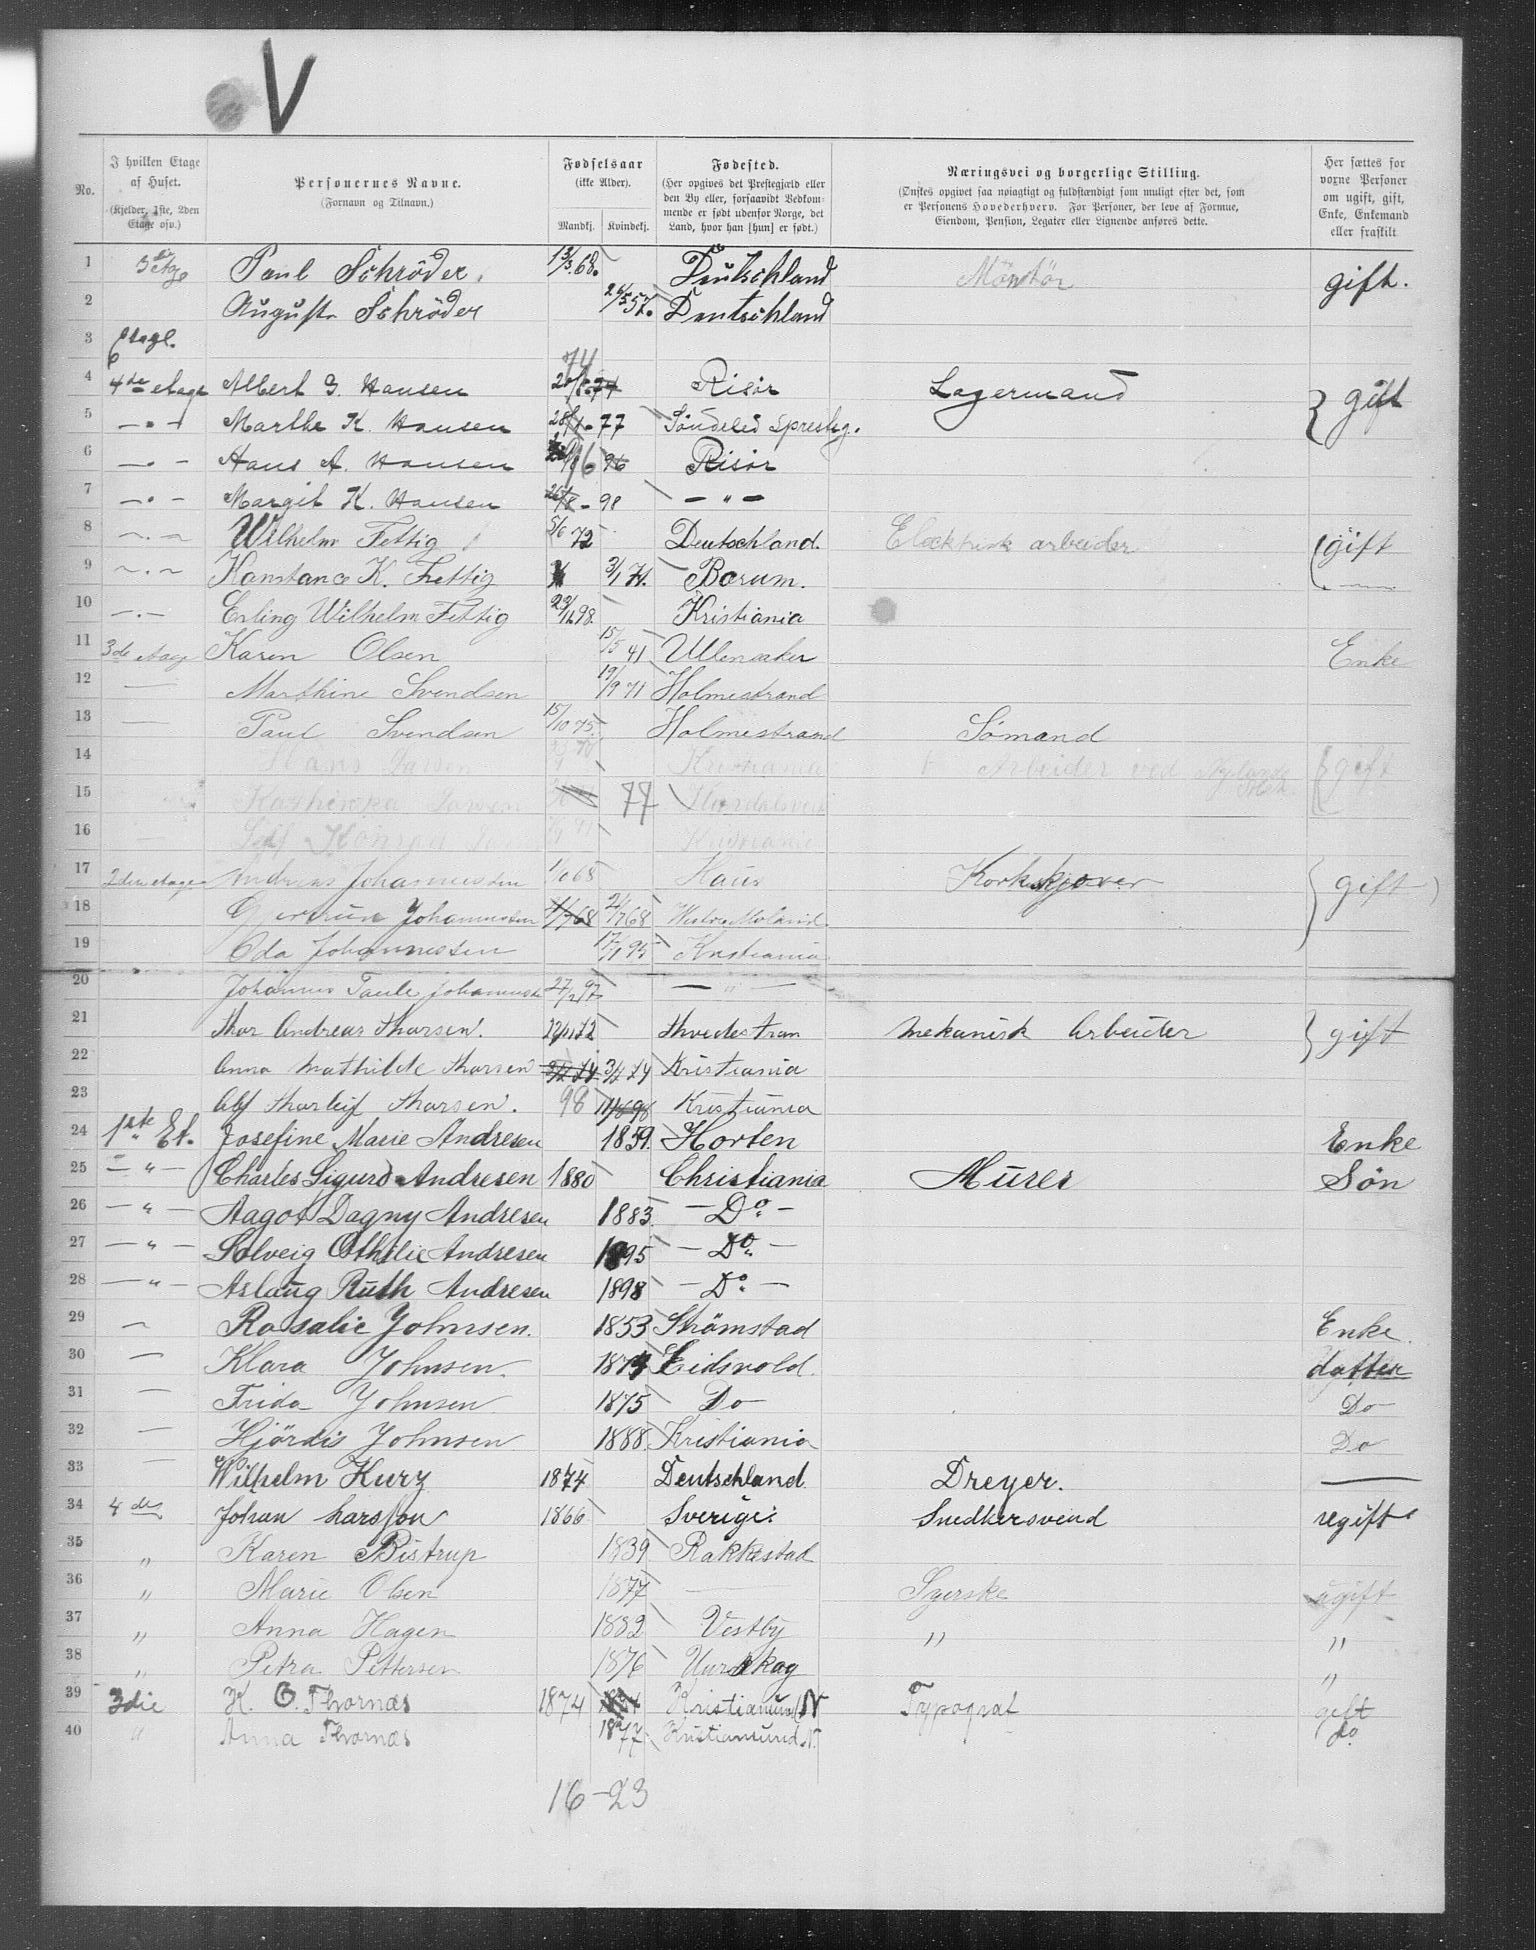 V
No.
I hvilken Etage af Huset. (Kjelder, 1ste, 2den Etage osv.)
Personernes Navne. (Fornavn og Tilnavn.)
Fødselsaar (ikke Alder). Mandkj. Kvindekj.
Fødested. (Her opgives det Prestegjæld eller den By eller, forsaavidt Vedkommende er født udenfor Norge, det Land, hvor han [hun] er født.)
Næringsvei og borgerlige Stilling. (Ønskes opgivet saa nøiagtigt og fuldstændigt som muligt efter det, som er Personens Hovederhverv. For Personer, der leve af Formue, Eiendom, Pension, Legater eller Lignende anføres dette.)
Her sættes for voxne Personer om ugift, gift, Enke, Enkemand eller fraskilt
1 Paul Schröder. 13/3 68. Deutschland gift.
2 Augusta Schröder 57. Deutschland
3
4 4de etage Albert G. Hansen 74 Risør Lagermand } gift
5 — " — Marthe K. Hansen 77 Søndeled
6 — " — Hans A. Hansen 96 Risør
7 — " — Margit K. Hansen 98 — " —
8 — " — Wilhelm Fettig 5/6 72 Deutschland. Elecktrisk arbeider gift
9 — " — Konstance K. Fettig 3/1 74. Bærum. —
10 — " — Erling Wilhelm Fettig 98. Kristiania
11 3de etag Karen Olsen 15/5 41 Ullensaker Enke
12 — Marthine Svendsen 19/9 71 Holmestrand
13 — Paul Svendsen 15/10 75 Holmestrand Sømand
14 Hans Larsen Kristiania Arbeider ved Nylands gift
15 Kathinka Larsen 77 Hurdalsverk
16 Leif Konrad Kristiania
17 2den etage Andreas Johannessen 1/10 68 Haus Korkskjærer } gift
18 Gjertrun Johannessen 2/7 68 Vestre Moland.
19 Oda Johannessen 17/1 95 Kristiania
20 Johannes Paule Johannessen 27/2 97 — " —
21 Thor Andreas Thorsen. 22/11 72 Thvedestran mekanisk Arbeider } gift
22 Anna Mathilde Thorsen 3/2 74 Kristiania
23 Alf Thorleif Thorsen. 98 Kristiania
24 1ste Et. Josefine Marie Andresen 1859. Horten Enke
25 — " — Charles Sigurd Andresen 1880 Christiania Murer Søn
26 — " — Aagot Dagny Andresen 1883. — Do —
27 — " — Solveig Othilie Andresen 1895 — Do —
28 — " — Aslaug Ruth Andresen 1898 — Do —
29 — Rosalie Johnsen. 1853 Strømstad Enke.
30 — Klara Johnsen. 1874 Eidsvold. datter
31 — Frida Johnsen 1875 Do — Do
32 — Hjördis Johnsen 1888. Kristiania Do
33 — Wilhelm Kurz 1874 Deutschland. Dreyer. —
34 4de Johan Larsson 1866 Sverige. Snedkersvend ugift
35 " Karen Bistrup 1839 Rakkestad
36 " Marie Olsen 1877 — Syerske ugift
37 " Anna Hagen 1882 Vestby " "
38 " Petra Pettersen 1876 Aurskog "
39 3die K. O. Thornæs 1874 Kristiansund N Typograf gift
40 " Anna Thornæs 1877 Kristiansund N. do
16-23